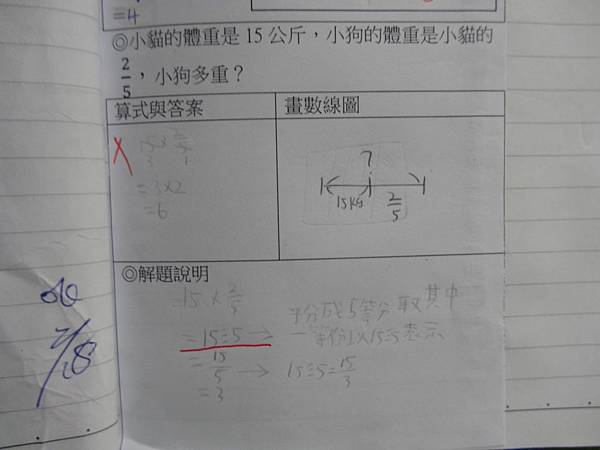 =4
◎小貓的體重是 15 公斤，小狗的體重是小貓的
2/5，小狗多重？
算式與答案
畫數線圖
15×2/5
3 1
=3×2
=6
?
15kg
2/5
◎解題說明
=15×2/5
=15÷5→平分成5等分取其中
一等份以15÷5表示
=15/5→15÷5=15/3
=3